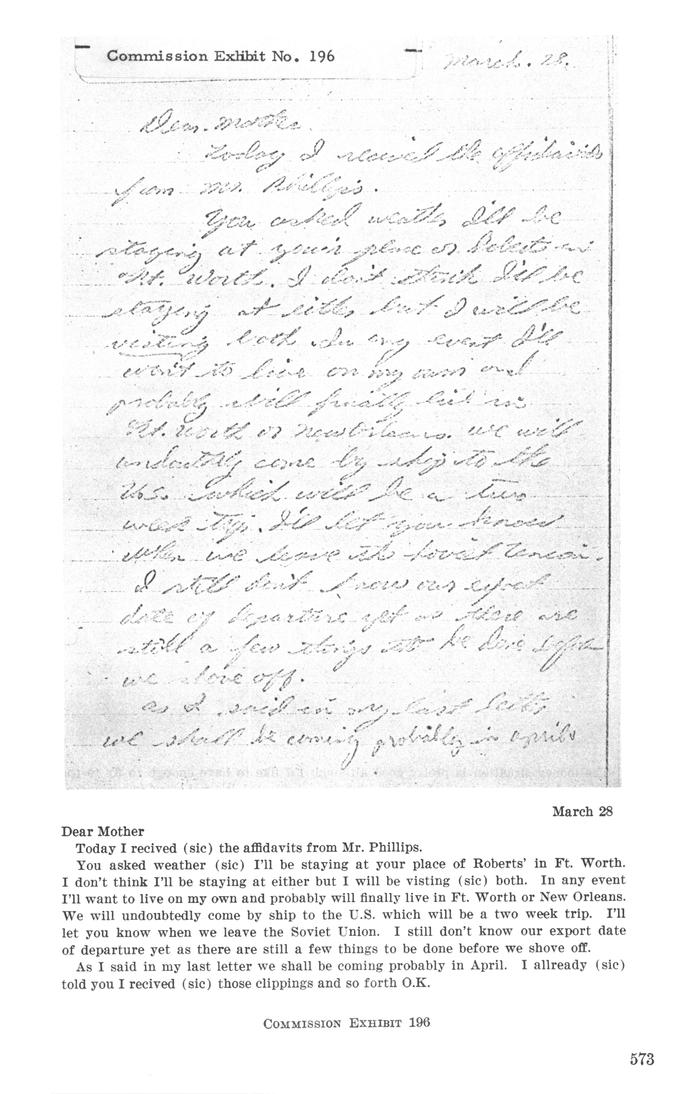 Commission Exhibit No. 196
March. 28.
Dear. Mother.
Today I recived the affidavids
from mr. Phillips.
You asked weather I'll be
staying at your place or Roberts in
Ft. Worth. I don't think I'll be
staying at either but I will be
visting both. In any event I'll
want to live on my own and
probably will finally live in
Ft. Worth or New Orleans. we will
come by ship to the
U.S. which will be a two
week trip. I'll let you know
when we leave the Soviet Union.
I still don't know our
date of departure yet as there are
still a few things to be done before
we shove off.
as I said in my last letter
we shall be coming probably in april.
March 28
Dear Mother
Today I recived (sic) the affidavits from Mr. Phillips.
You asked weather (sic) I'll be staying at your place of Roberts' in Ft. Worth.
I don't think I'll be staying at either but I will be visting (sic) both. In any event
I'll want to live on my own and probably will finally live in Ft. Worth or New Orleans.
We will undoubtedly come by ship to the U.S. which will be a two week trip. I'll
let you know when we leave the Soviet Union. I still don't know our export date
of departure yet as there are still a few things to be done before we shove off.
As I said in my last letter we shall be coming probably in April. I allready (sic)
told you I recived (sic) those clippings and so forth O.K.
COMMISSION EXHIBIT 196
573